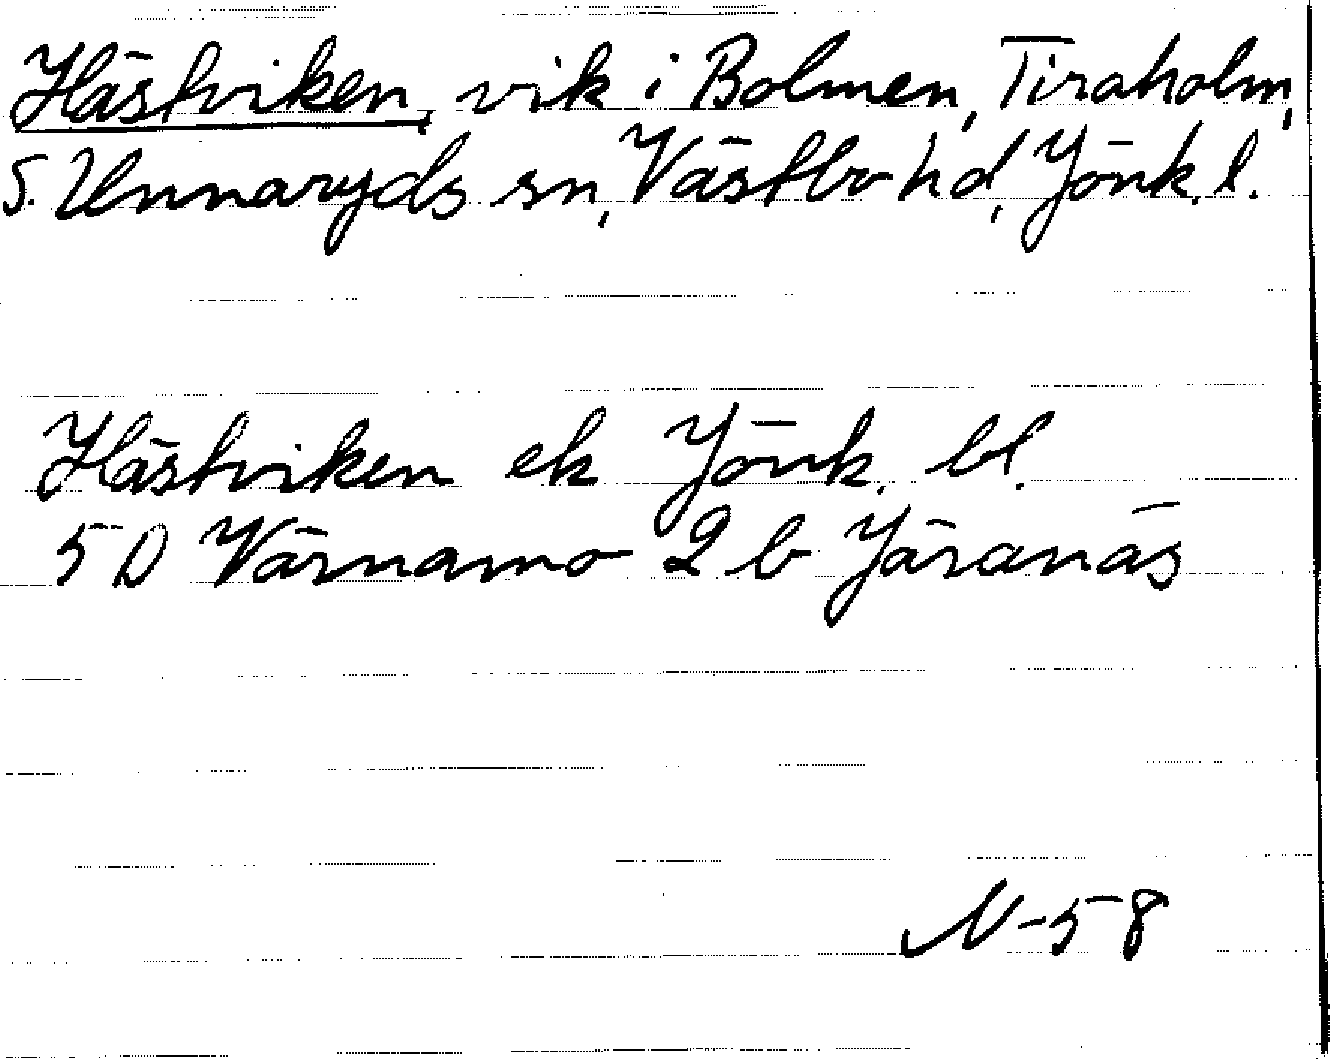 Hästviken, vik i Bolmen, Tiraholm,
S. Unnaryds sn, Västbo hd, Jönk. l.
Hästviken ek Jönk. bl.
5D Värnamo 2b Järanäs
N-58